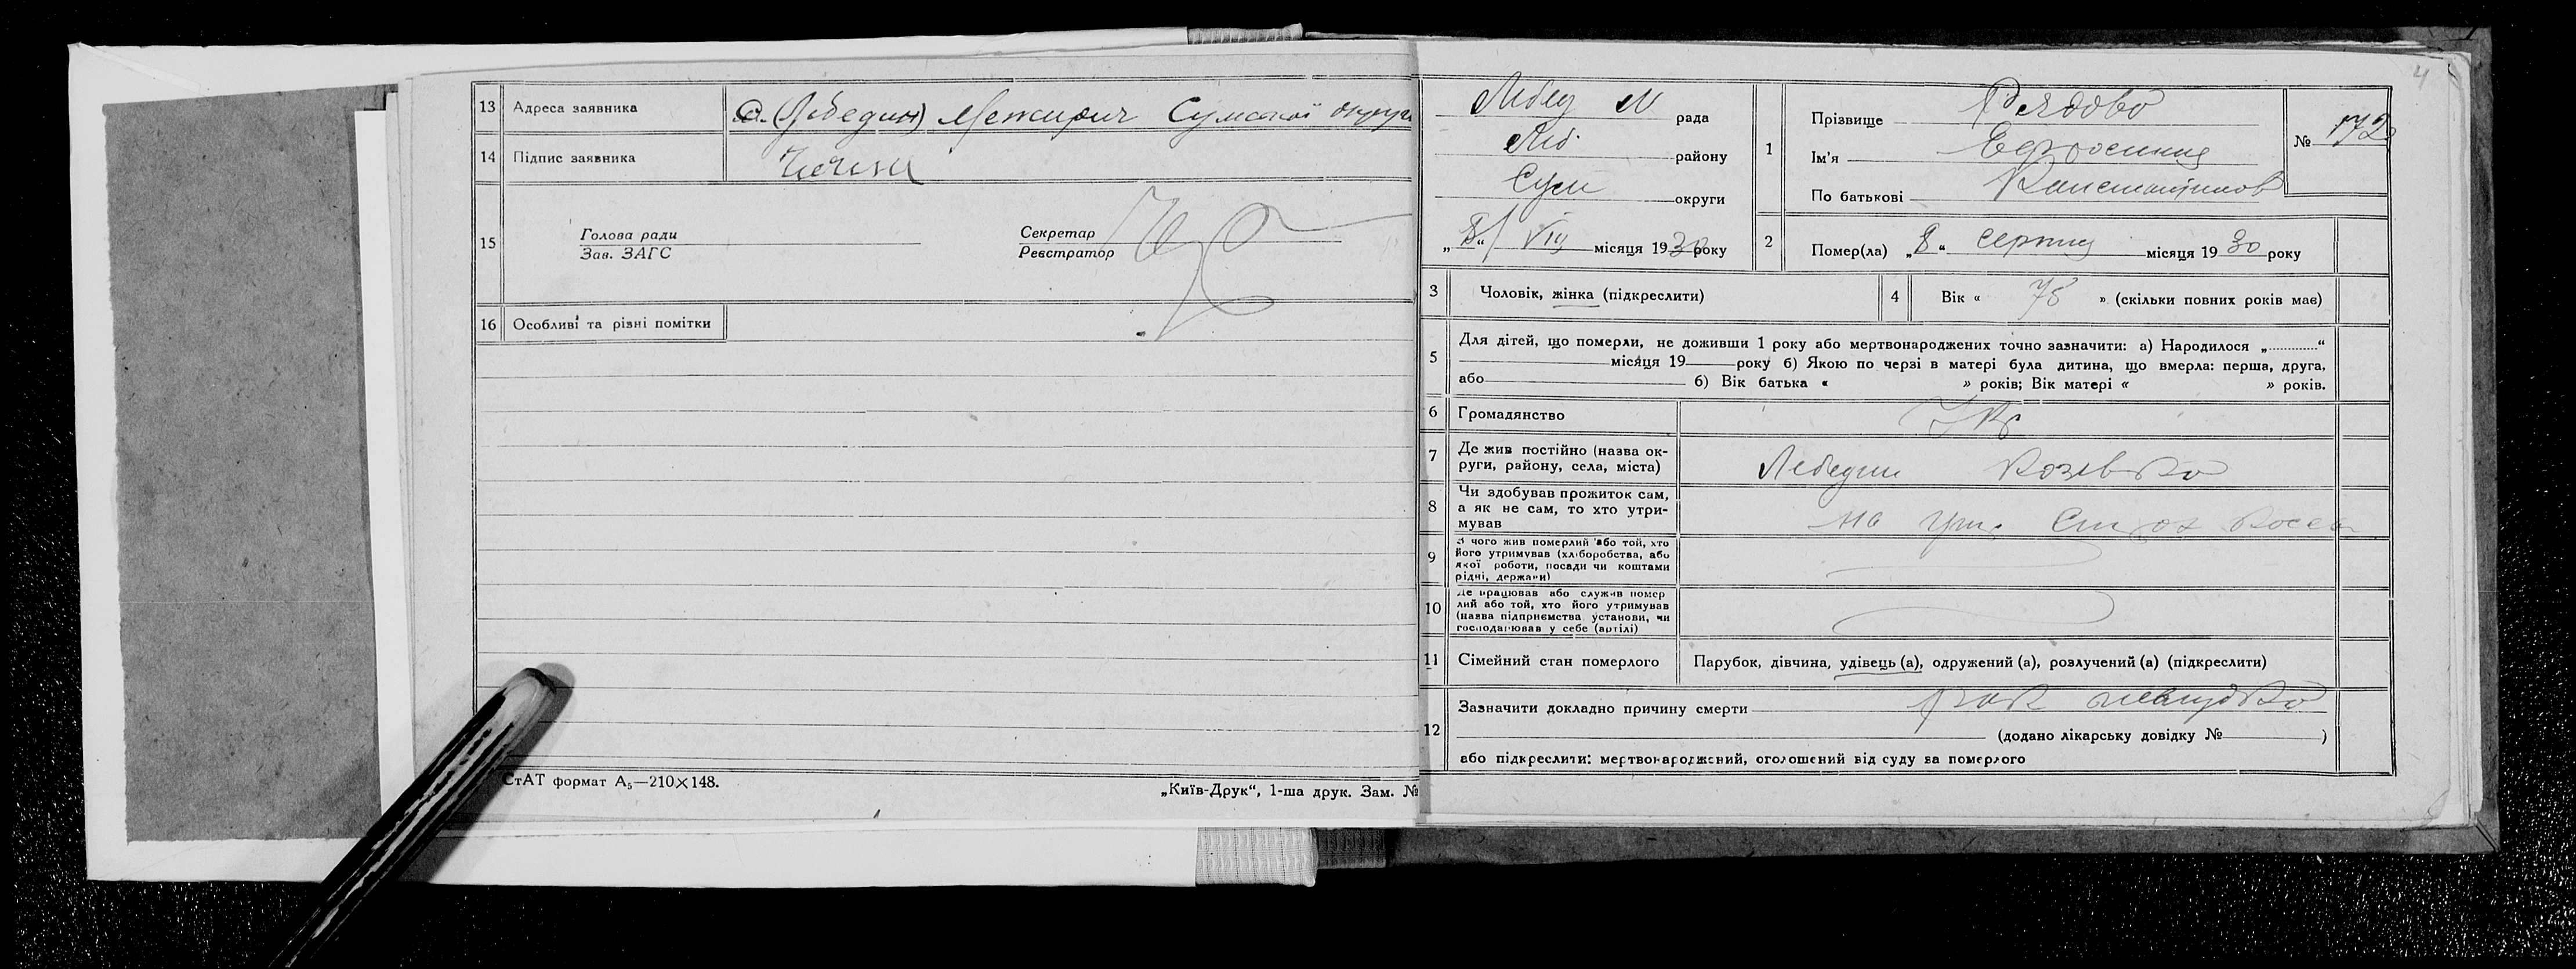 13 Адреса заявника с. (Лебедин) Межирич Сумської округи
14 Підпис заявника
15 Голова ради
Зав. ЗАГС
Секретар
Реєстратор
16 Особливі та різні помітки
СтАТ формат А₅—210×148.
„Київ-Друк“, 1-ша друк. Зам. №
4
Лебед М рада
Леб. району
Суми округи
„8“ VIII місяця 1930 року
1 Прізвище
Ім'я
По батькові Констянтинов
№ 172
2 Помер(ла) „8“ серпня місяця 1930 року
3 Чоловік, жінка (підкреслити)
4 Вік « 75 » (скільки повних років мав)
5 Для дітей, що померли, не доживши 1 року або мертвонароджених точно зазначити: а) Народилося „............“
місяця 19 року б) Якою по черзі в матері була дитина, що вмерла: перша, друга,
або б) Вік батька « » років; Вік матері « » років.
6 Громадянство Укр
7 Де жив постійно (назва ок-
руги, району, села, міста) Лебедин
8 Чи здобував прожиток сам,
а як не сам, то хто утри-
мував на утр. Страх каси
9 З чого жив померлий або той, хто
його утримував (хліборобства, або
якої роботи, посади чи коштами
рідні, держави)
10 Де працював або служив помер
лий або той, хто його утримував
(назва підприємства установи, чи
господарював у себе (артілі)
11 Сімейний стан померлого Парубок, дівчина, удівець (а), одружений (а), розлучений (а) (підкреслити)
12 Зазначити докладно причину смерти рак желудка
(додано лікарську довідку № )
або підкреслити: мертвонароджений, оголошений від суду за померлого